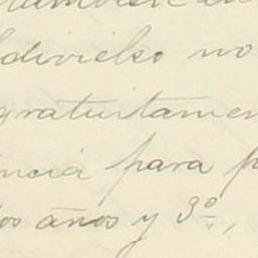 ldivielso no
gratuitamen
ncia para p
os años y 3º,